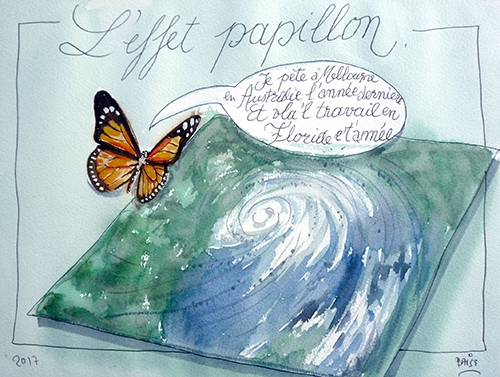 L'effet papillon.
Je pète à Melbourne
en Australie l'année dernière
Et v'la'l travail en
Floride c't'année
2017
BAiSS